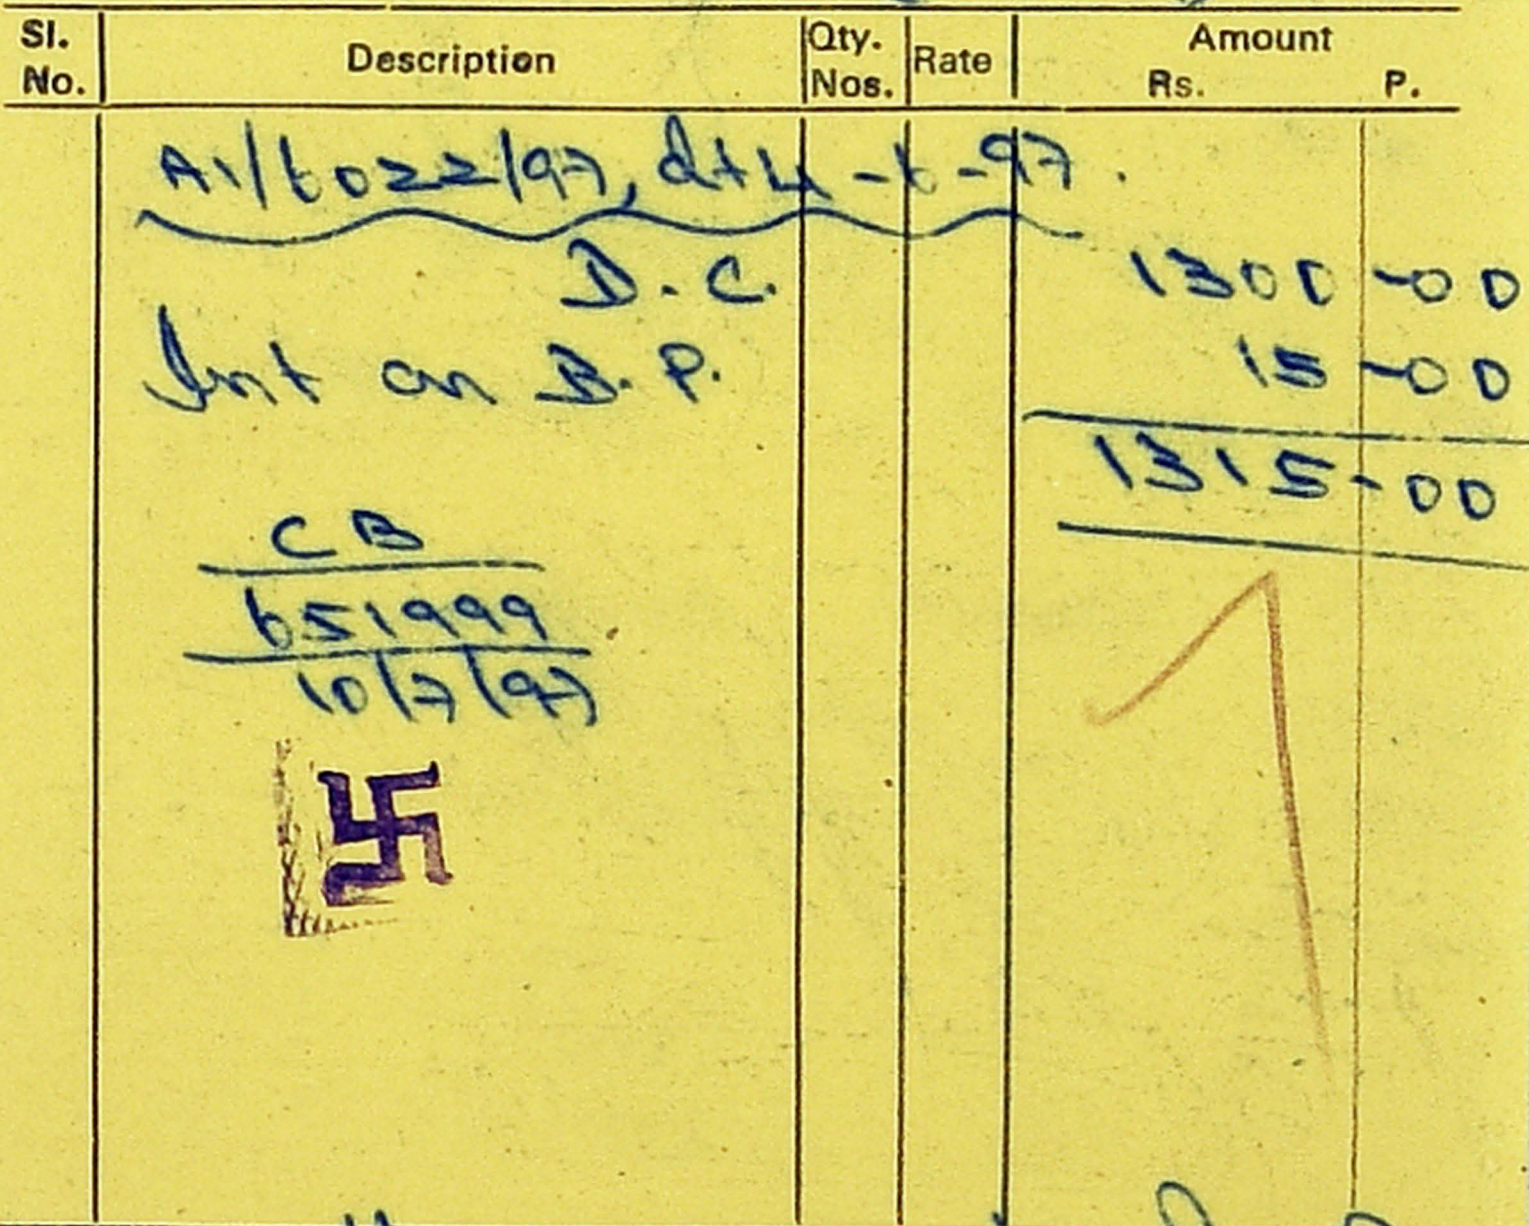 Sl. No. Description Qty. Nos. Rate Amount Rs. P.
A1/6022/97, dt 4-6-97.
D.C. 1300-00
Int on B.P. 15-00
1315-00
CB
651999
10/7/97